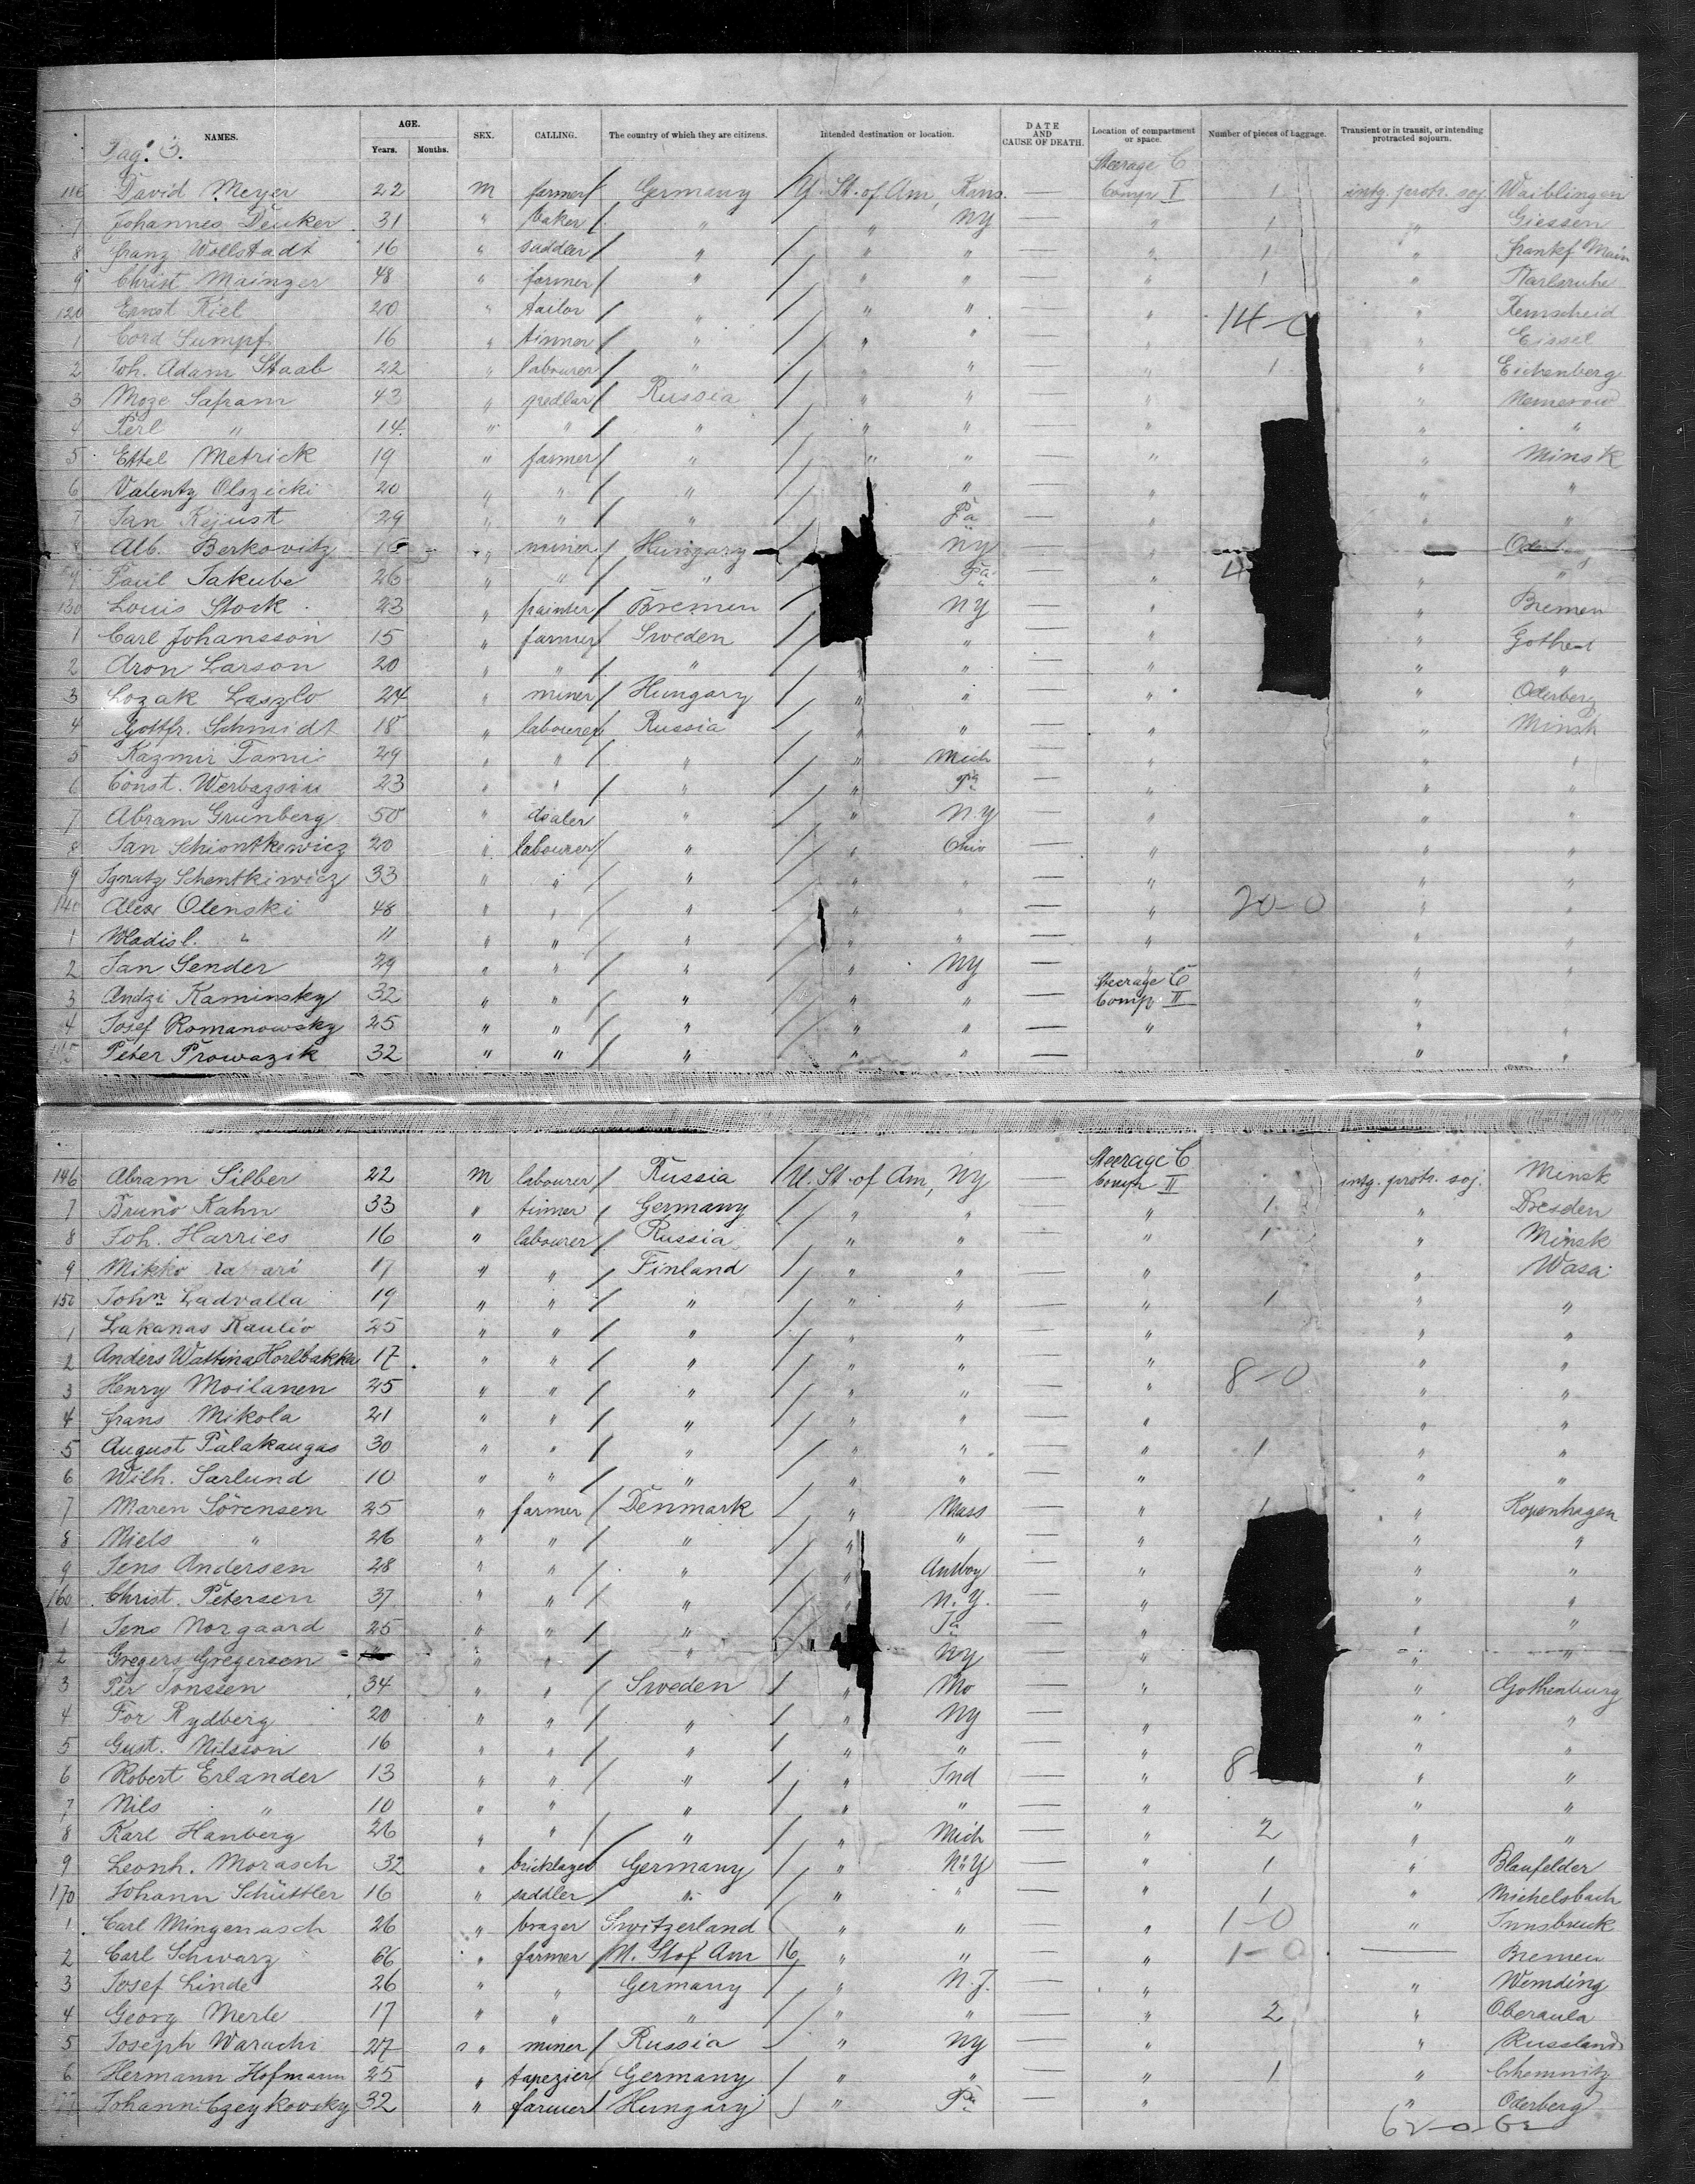 NAMES. AGE. SEX. CALLING. The country of which they are citizens. Intended destination or location. DATE AND CAUSE OF DEATH. Location of compartment or space. Number of pieces of baggage. Transient or in transit, or intending protracted sojourn.
Years. Months.
Pag. 3. Steerage C
116 David Meyer 22 M farmer Germany U. St. of Am, Kans. — Comp I 1 intg. protr. soj. Waiblingen
7 Johannes Deuker 31 " baker " " NY — " 1 " Giessen
8 Franz Wollstadt 16 " saddler " " " — " 1 " Frankf. Main
9 Christ Mainzer 48 " farmer " " " — " 1 " Karlsruhe
120 Ernst Kiel 20 " tailor " " " — " 14-0 " Remscheid
1 Cord Sumpf 16 " tinner " " " — " " Eissel
2 Joh. Adam Staab 22 " labourer " " " — " 1 " Eichenberg
3 Moze Safrann 43 " pedlar Russia " " — " " Nemerow
4 Perl " 14 " " " " " — " " "
5 Ettel Metrick 19 " farmer " " " — " " Minsk
6 Valenty Olszicki 20 " " " " — " " "
7 Jan Kejust 29 " " " Pa — " " "
8 Alb. Berkovitz 16 " miner Hungary NY —
9 Paul Jakube 26 " " " Pa — " "
130 Louis Stock 23 " painter Bremen NY — " " Bremen
1 Carl Johansson 15 " farmer Sweden " — " "
2 Aron Larson 20 " " " " — " " "
3 Lozak Laszlo 24 " miner Hungary " " — " " Oderberg
4 Gottfr. Schmidt 18 " labourer Russia " " — " " Minsk
5 Kazmir Tami 29 " " " " Mich — " " "
6 Const. Werbazsiu 23 " " " " Pa — " " "
7 Abram Grunberg 50 " dealer " " N.Y — " " "
8 Jan Schiontkewicz 20 " labourer " " Ohio — " " "
9 Ignatz Schentkiwicz 33 " " " " " — " " "
140 Alex Olenski 48 " " " " " — " 20-0 " "
1 Wladisl. " 11 " " " " " — " " "
2 Jan Sender 29 " " " " NY — " " "
3 Andzi Kaminsky 32 " " " " " — Steerage C Comp II "
4 Josef Romanowsky 25 " " " " " — " " "
145 Peter Prowazik 32 " " " " " — " "
Steerage C
146 Abram Silber 22 M labourer Russia U. St. of Am, NY — Comp II intg. protr. soj. Minsk
7 Bruno Kahn 33 " tinner Germany " " — " 1 " Dresden
8 Joh. Harries 16 " labourer Russia " " — " 1 " Minsk
9 Mikko 17 " " Finland " " — " " Wasa
150 John Ladvalla 19 " " " " " — " 1 " "
1 Lakanas Kaulio 25 " " " " " — " " "
2 Anders Wattina Horlbakka 17 " " " " " — " 8-0 " "
3 Henry Moilanen 25 " " " " " — " " "
4 Frans Mikola 21 " " " " " — " " "
5 August Palakangas 30 " " " " " — " 1 " "
6 Wilh. Sarlund 10 " " " " " — " " "
7 Maren Sörensen 25 " farmer Denmark " Mass — " 1 " Kopenhagen
8 Niels " 26 " " " " " — " " "
9 Jens Andersen 28 " " " " Amboy — " " "
160 Christ. Petersen 37 " " " N.Y. — " " "
1 Jens Norgaard 25 " " " — " " "
2 Gregers Gregersen " " " NY — " " "
3 Per Jonssen 34 " " Sweden " Mo — " " Gothenburg
4 Tor Rydberg 20 " " " " NY — " " "
5 Gust. Nilsson 16 " " " " " — " " "
6 Robert Erlander 13 " " " " Ind — " " "
7 Nils " 10 " " " " " — " " "
8 Karl Hanberg 26 " " " " Mich — " 2 " "
9 Leonh. Morasch 32 " bricklayer Germany " N.Y — " 1 " Blaufelder
170 Johann Schüttler 16 " saddler " " " — " 1 " Michelsbach
1 Carl Mingenasch 26 " brazer Switzerland " " — " 1-0 " Innsbruck
2 Carl Schwarz 66 " farmer U. St of Am 16 " " — " 1-0 — Bremen
3 Josef Linde 26 " " Germany " N.J. — " " Wemding
4 Georg Merle 17 " " " " " — " 2 " Oberaula
5 Joseph Warachi 27 " miner Russia " NY — " " Russland
6 Hermann Hofmann 25 " tapezier Germany " " — " 1 " Chemnitz
177 Johann Czeykovsky 32 " farmer Hungary " Pa — " " Oderberg